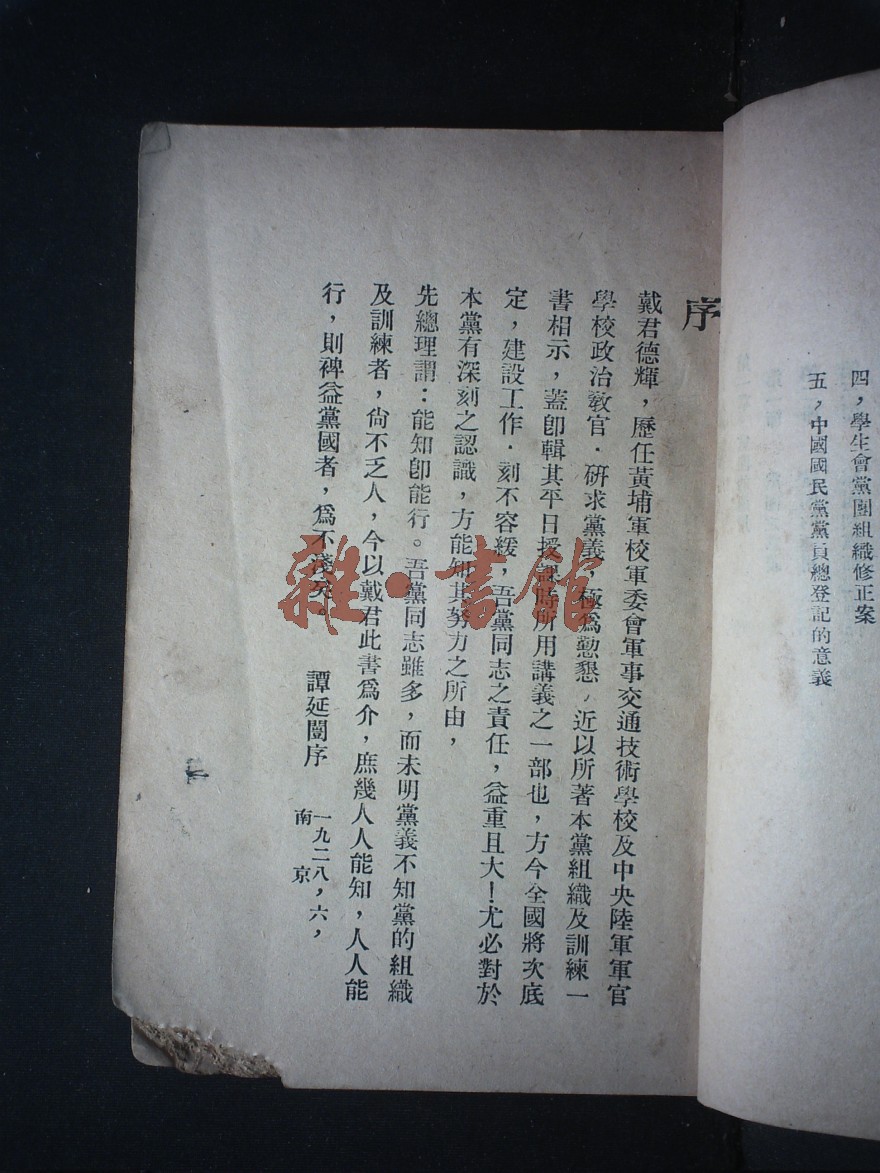 四，學生會黨團組織修正案
五，中國國民黨黨員總登記的意義
序
戴君德輝，歷任黃埔軍校軍委會軍事交通技術學校及中央陸軍軍官
學校政治教官．研求黨義，極爲懃懇，近以所著本黨組織及訓練一
書相示，蓋卽輯其平日授課時所用講義之一部也，方今全國將次底
定，建設工作．刻不容緩，吾黨同志之責任，益重且大！尤必對於
本黨有深刻之認識，方能知其努力之所由，
先總理謂：能知卽能行。吾黨同志雖多，而未明黨義不知黨的組織
及訓練者，尙不乏人，今以戴君此書爲介，庶幾人人能知，人人能
行，則裨益黨國者，爲不淺矣。
譚延闓序
一九二八，六，
南京
雜·書館